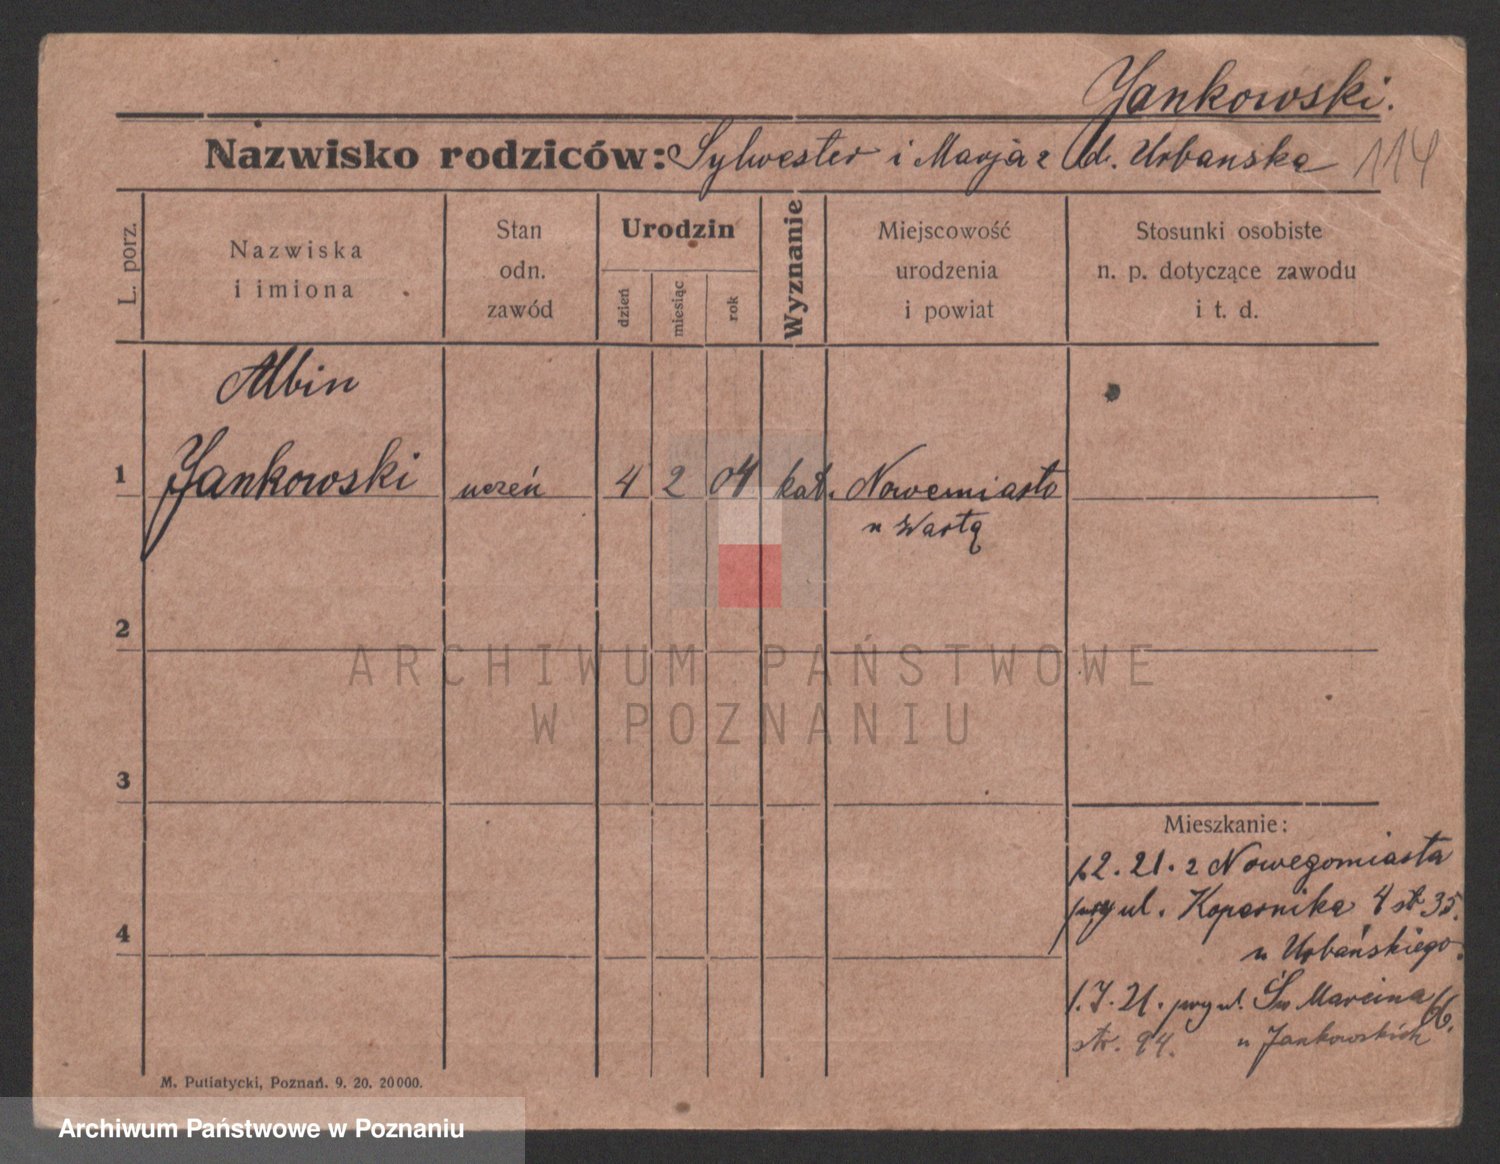 Jankowski.
Nazwisko rodziców: Sylwester i Marja z d. Urbanska 114
L. porz.
Nazwiska
i imiona
Stan
odn.
zawód
Urodzin
dzień
miesiąc
rok
Wyznanie
Miejscowość
urodzenia
i powiat
Stosunki osobiste
n. p. dotyczące zawodu
i t. d.
Albin
1 Jankowski uczeń 4 2 04 kat. Nowemiasto
n Wartą
2
3
4
ARCHIWUM PAŃSTWOWE
W POZNANIU
Mieszkanie:
2. 21. z Nowegomiasta
przy ul. Kopernika 4 st 35.
u Urbańskiego.
1. 7. 21. przy ul. Św Marcina 66.
str. 94. u Jankowskich
M. Putiatycki, Poznań. 9. 20. 20000.
Archiwum Państwowe w Poznaniu